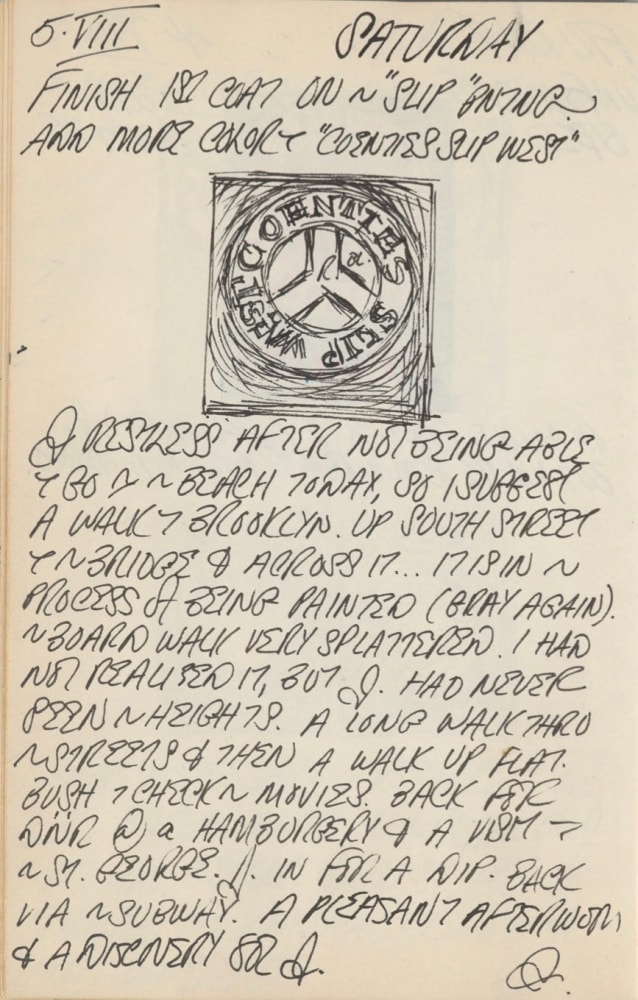 5·VIII SATURDAY
FINISH 1ST COAT ON ~ "SLIP" PNTNG.
ADD MORE COLOR T "COENTIES SLIP WEST"
COENTIES SLIP WEST
J RESTLESS AFTER NOT BEING ABLE
T GO T ~ BEACH TODAY, SO I SUGGEST
A WALK T BROOKLYN. UP SOUTH STREET
T ~ BRIDGE & ACROSS IT... IT IS IN ~
PROCESS of BEING PAINTED (GRAY AGAIN).
~ BOARD WALK VERY SPLATTERED. I HAD
NOT REALISED IT, BUT J. HAD NEVER
SEEN ~ HEIGHTS. A LONG WALK THRO
~ STREETS & THEN A WALK UP FLAT.
BUSH T CHECK ~ MOVIES. BACK FOR
DNNR @ a HAMBURGERY & A VISIT T
~ ST. GEORGE. J. IN FOR A DIP. BACK
VIA ~ SUBWAY. A PLEASANT AFTERNOON
& A DISCOVERY FOR J.